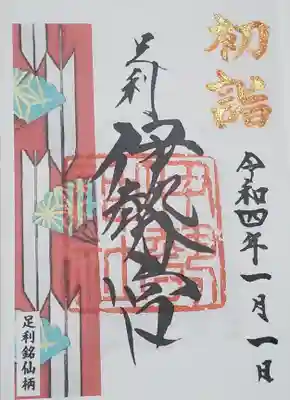 初詣
足利
伊勢宮
令和四年一月一日
足利銘仙柄